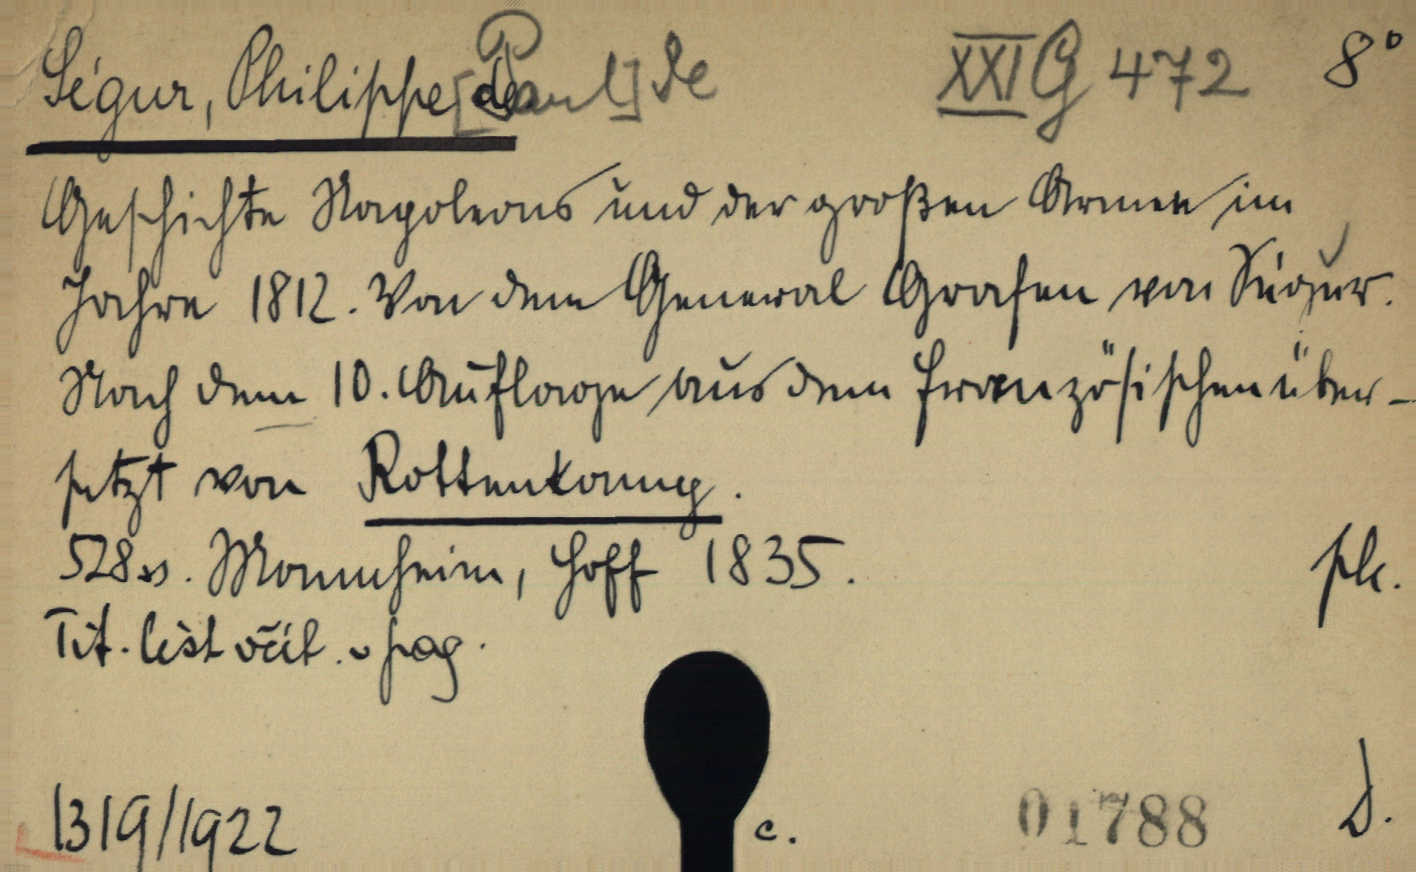 Ségur, Philippe [Paul] de XXI G 472 8°
Geschichte Napoleons und der großen Armee im
Jahre 1812. Von dem General Grafen von Ségur.
Nach dem 10. Auflage aus dem französischen über-
setzt von Rottenkamp.
528 s. Mannheim, Hoff 1835.
Tit. list včít. v pag.
1319/1922 c. 01788 D.